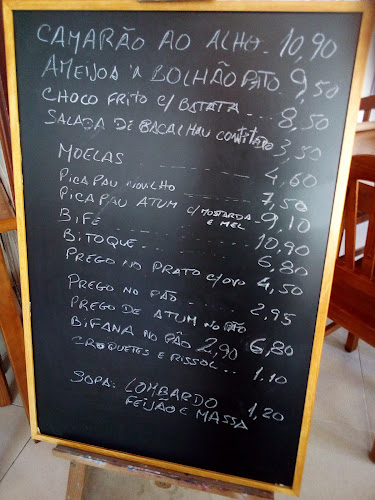 CAMARÃO AO ALHO - 10,90
AMEIJOA À BOLHÃO PATO. 9,50
CHOCO FRITO C/ BATATA ... 8,50
SALADA DE BACALHAU 3,50
MOELAS ---- 4,60
PICA PAU NOVILHO --- 7,50
PICA PAU ATUM C/MOSTARDA E MEL - 9,10
BIFE ---- 10,90
BITOQUE . --- 6,80
PREGO NO PRATO C/OVO 4,50
PREGO NO PÃO . --- 2,95
PREGO DE ATUM NO PÃO 6,80
BIFANA NO PÃO 2,90
CROQUETES E RISSOL ... 1,10
SOPA: LOMBARDO
FEIJÃO E MASSA 1,20